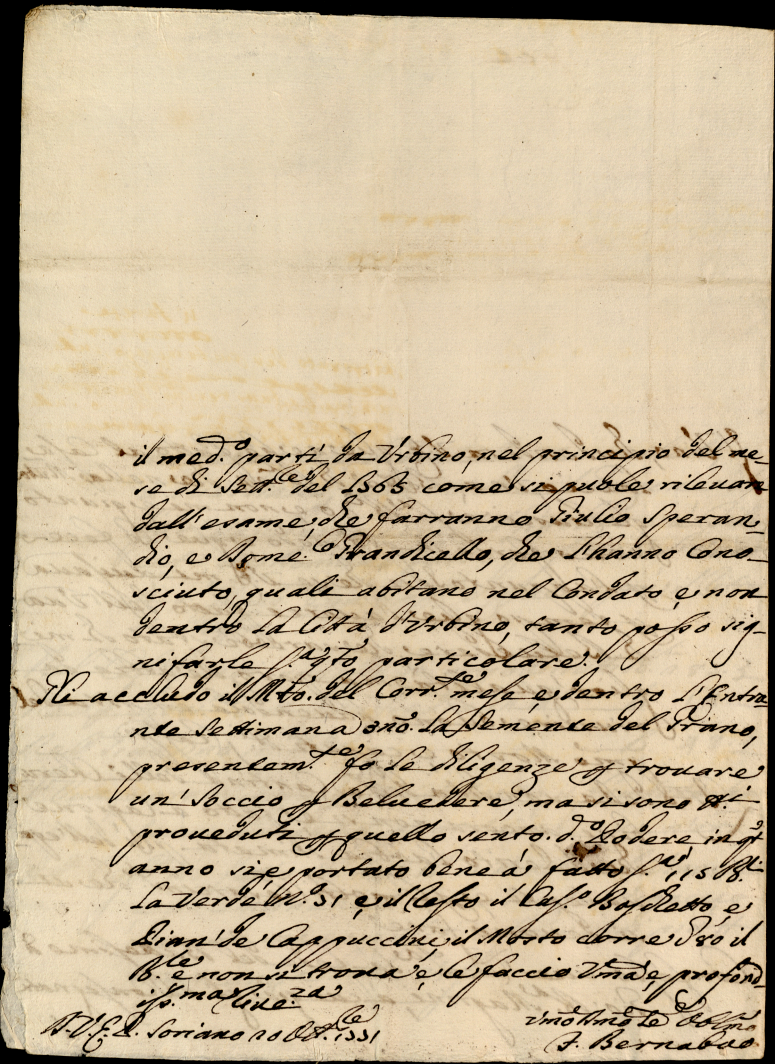 il med.° partì da Urbino, nel principio del me-
se di Sett.e del 1363 come si puole rileuare
dall'esame, che farranno Giulio Speran-
dio, e Dome.co Grandicello, che l'hanno Cono-
sciuto, quali abitano nel Contado, e non
dentro la Città d'Urbino, tanto posso sig-
nifarle s.a q.to particolare.
Gli accludo il M.to del Corr.te mese, e dentro l'Entra-
nte Settimana la Semente del Grano,
presentem.te fo le diligenze trouare
un' Soccio Beluedere, ma si sono
proueduti quello sento. d.o Podere in
anno si è portato bene à fatto
La Verde n.° 31 e il Resto il Boschetto, e
Pian' de Cappuccini, il Mosto corre il
e non si troua, e le faccio Vma, e profond-
iss.ma riue.za
D.V.E. Soriano 20
F. Bernardo